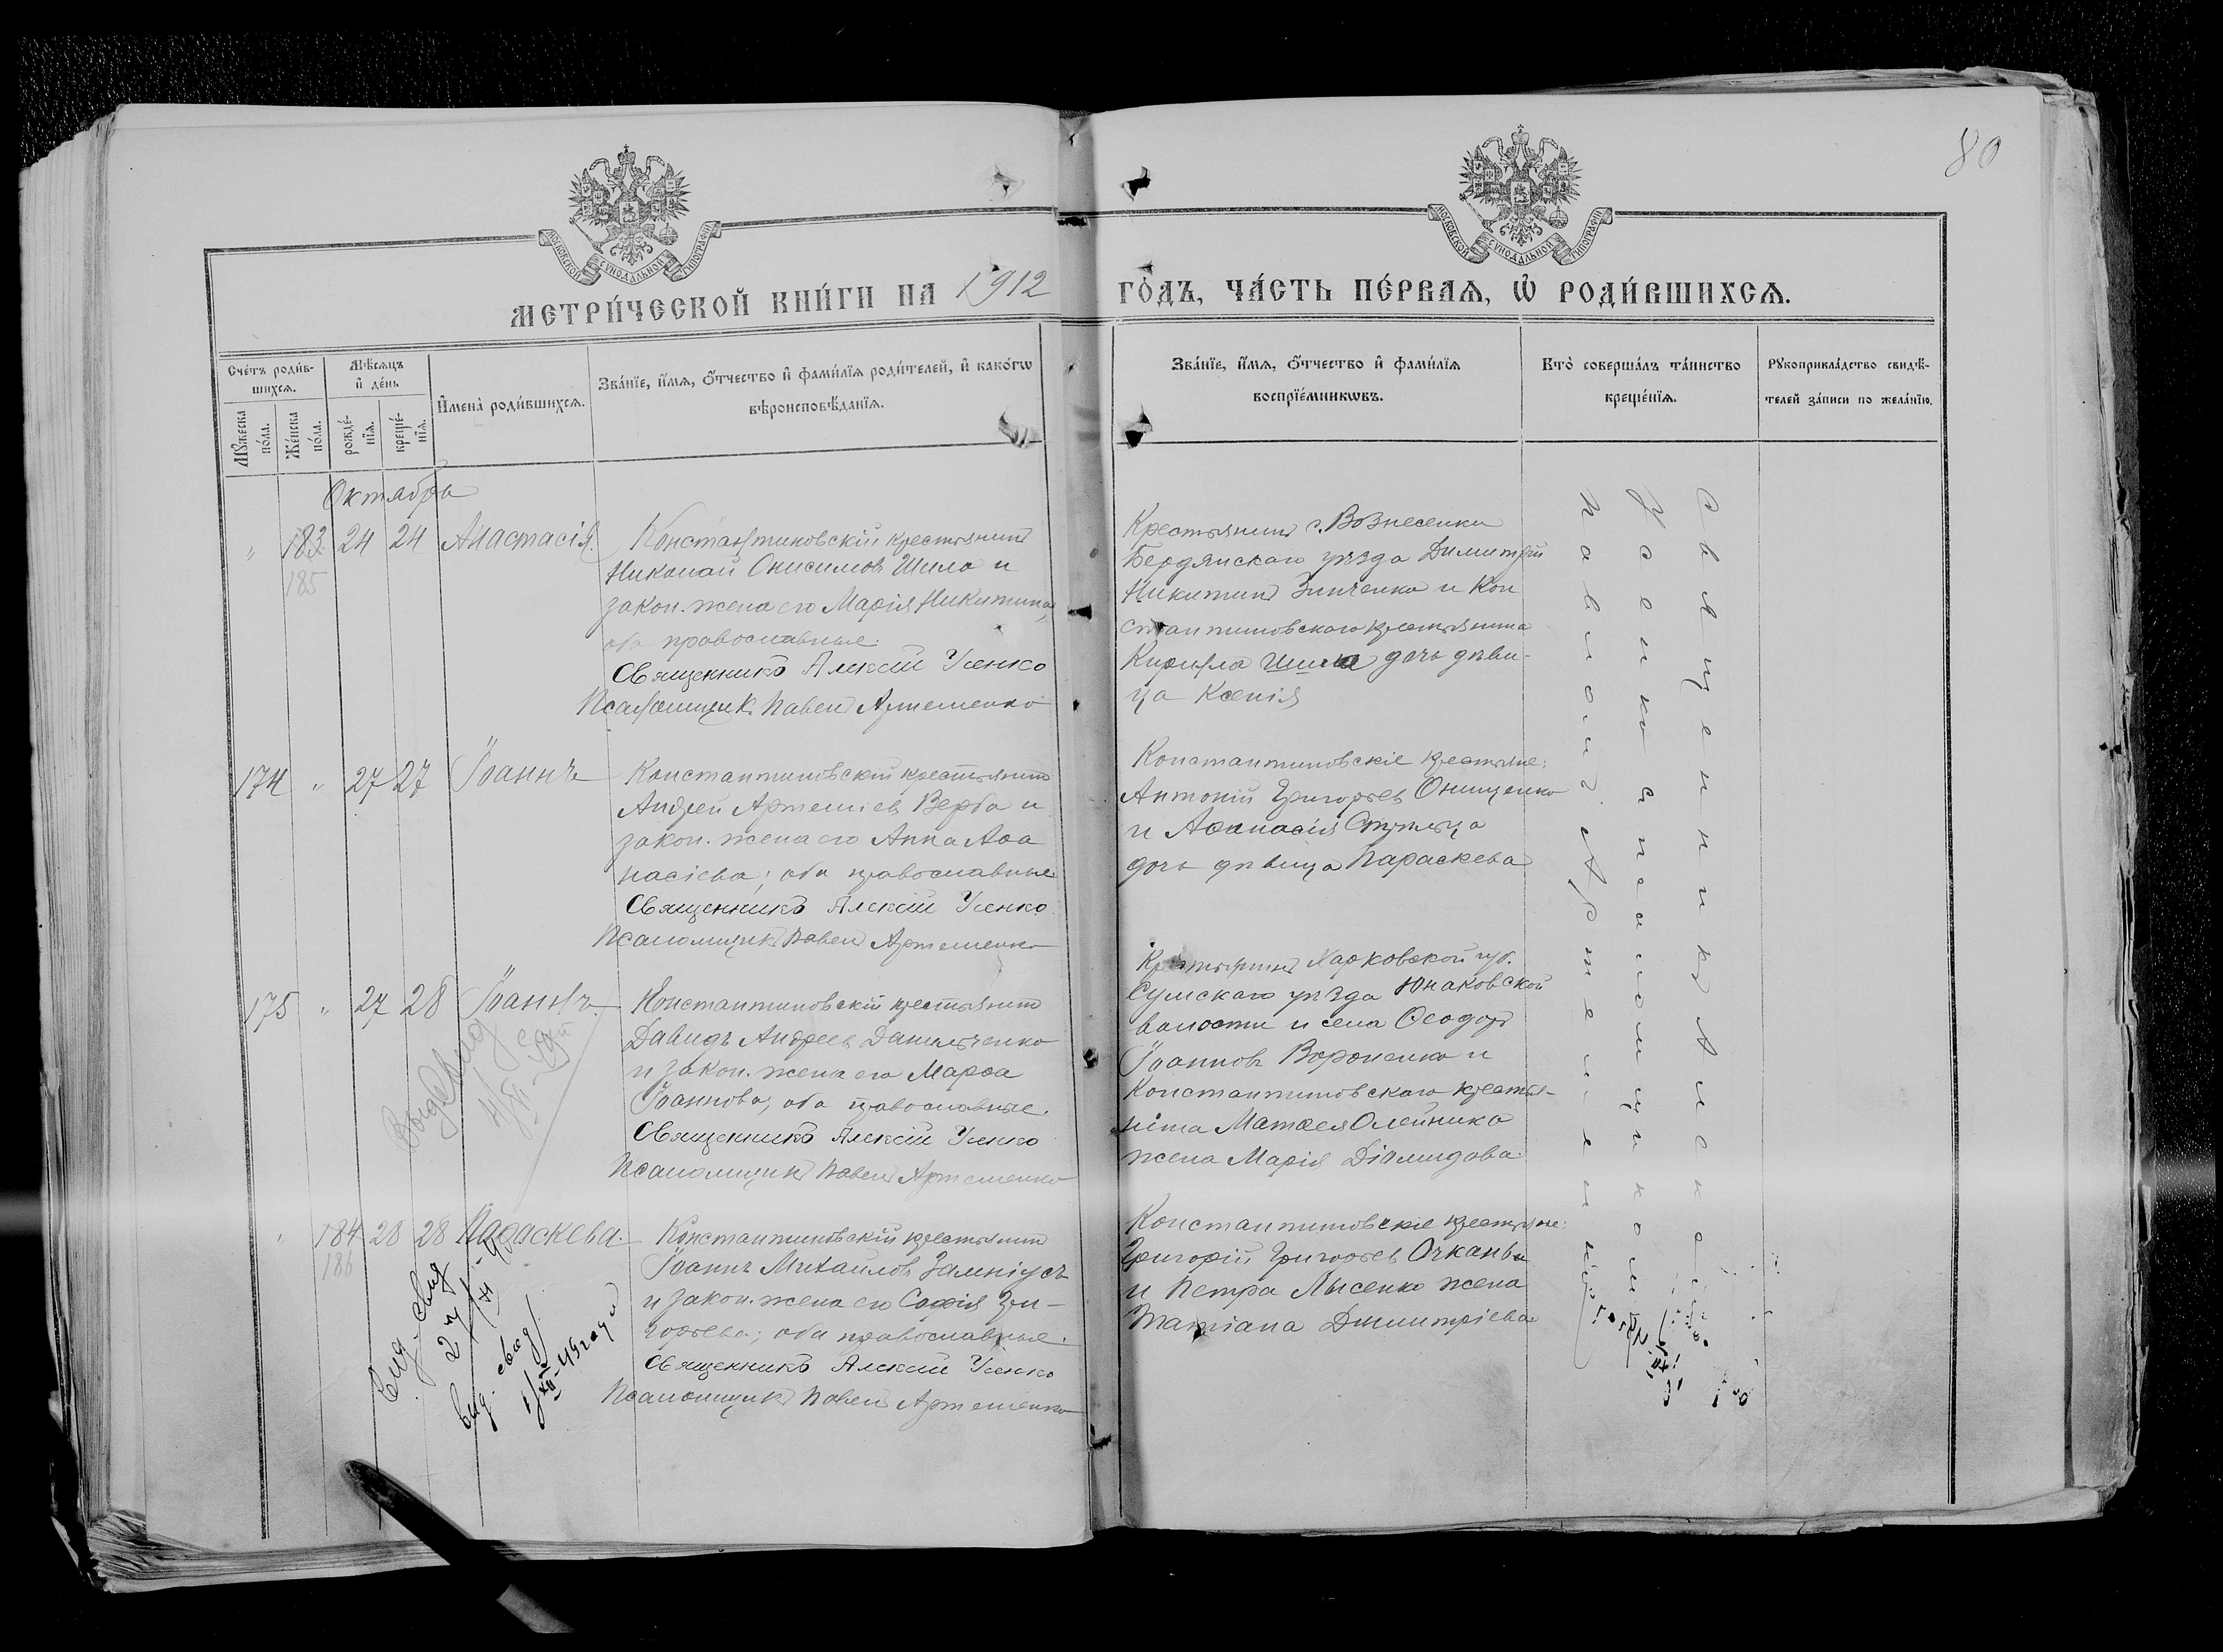 80
МОСКОВСКОЙ СѴНОДАЛЬНОЙ ТИПОГРАФІИ
МОСКОВСКОЙ СѴНОДАЛЬНОЙ ТИПОГРАФІИ
МЕТРИ́ЧЕСКОЙ КНИ́ГИ НА 1912 ГО́ДЪ, ЧА́СТЬ ПЕ́РВАѦ, Ѡ҆ РОДИ́ВШИХСѦ.
Сче́тъ роди́в-
шихсѧ.
Мꙋ́жеска по́ла.
Же́нска по́ла.
Мѣ́сѧцъ
и҆ де́нь
рожде́-
нїѧ.
креще́-
нїѧ.
И҆мена̀ роди́вшихсѧ.
Зва́нїе, и҆́мѧ, ѻ҆́тчество и҆ фами́лїѧ роди́телей, и҆ како́гѡ
вѣроисповѣ́данїѧ.
Зва́нїе, и҆́мѧ, ѻ҆́тчество и҆ фами́лїѧ
воспрїе́мникѡвъ.
Кто̀ соверша́лъ та́инство
креще́нїѧ.
Рꙋкоприкла́дство свидѣ́-
телей за́писи по жела́нїю.
Октября
" 183 24 24 Анастасія.
185
Константиновскій крестьянинъ
Николай Онисимовъ Шило и
закон. жена его Марія Никитина,
оба православные.
Священникъ Алексій Усенко
Псаломщикъ Павелъ Артеменко
Крестьянинъ с. Вознесенки
Бердянскаго уѣзда Димитрій
Никитинъ Зинченко и Кон
стантиновскаго крестьянина
Кирилла Шила дочь дѣви-
ца Ксенія
174 " 27 27 Іоаннъ
Константиновскій крестьянинъ
Андрей Артеміевъ Верба и
закон. жена его Анна Аѳа
насіева; оба православные
Священникъ Алексій Усенко
Псаломщикъ Павелъ Артеменко
Константиновскіе крестьяне:
Антоній Григорьевъ Онищенко
и Аѳанасія
дочь дѣвица Параскева
175 " 27 28 Іоаннъ.
Константиновскій крестьянинъ
Давидъ Андреевъ Данильченко
и закон. жена его Марѳа
Іоаннова, оба православные.
Священникъ Алексій Усенко
Псаломщикъ Павелъ Артеменко
Крестьянинъ Харковской губ.
Сумскаго уѣзда Юнаковской
волости и села Ѳеодоръ
Іоанновъ Вороненко и
Константиновскаго кресть-
нина Матѳея Олейника
жена Марія Діамидова.
" 184 28 28 Параскева.
186
Константиновскій крестьянинъ
Іоаннъ Михаиловъ
и закон. жена его Софія Гри-
горьева; оба православные.
Священникъ Алексій Усенко
Псаломщикъ Павелъ Артеменко
Константиновскіе крестьяне:
Григорій Григорьевъ
и Петра Лысенко жена
Татіана Димитріева.
Священникъ Алексій
Усенко псаломщикомъ
Павломъ Артеменкомъ
Выд. свид.